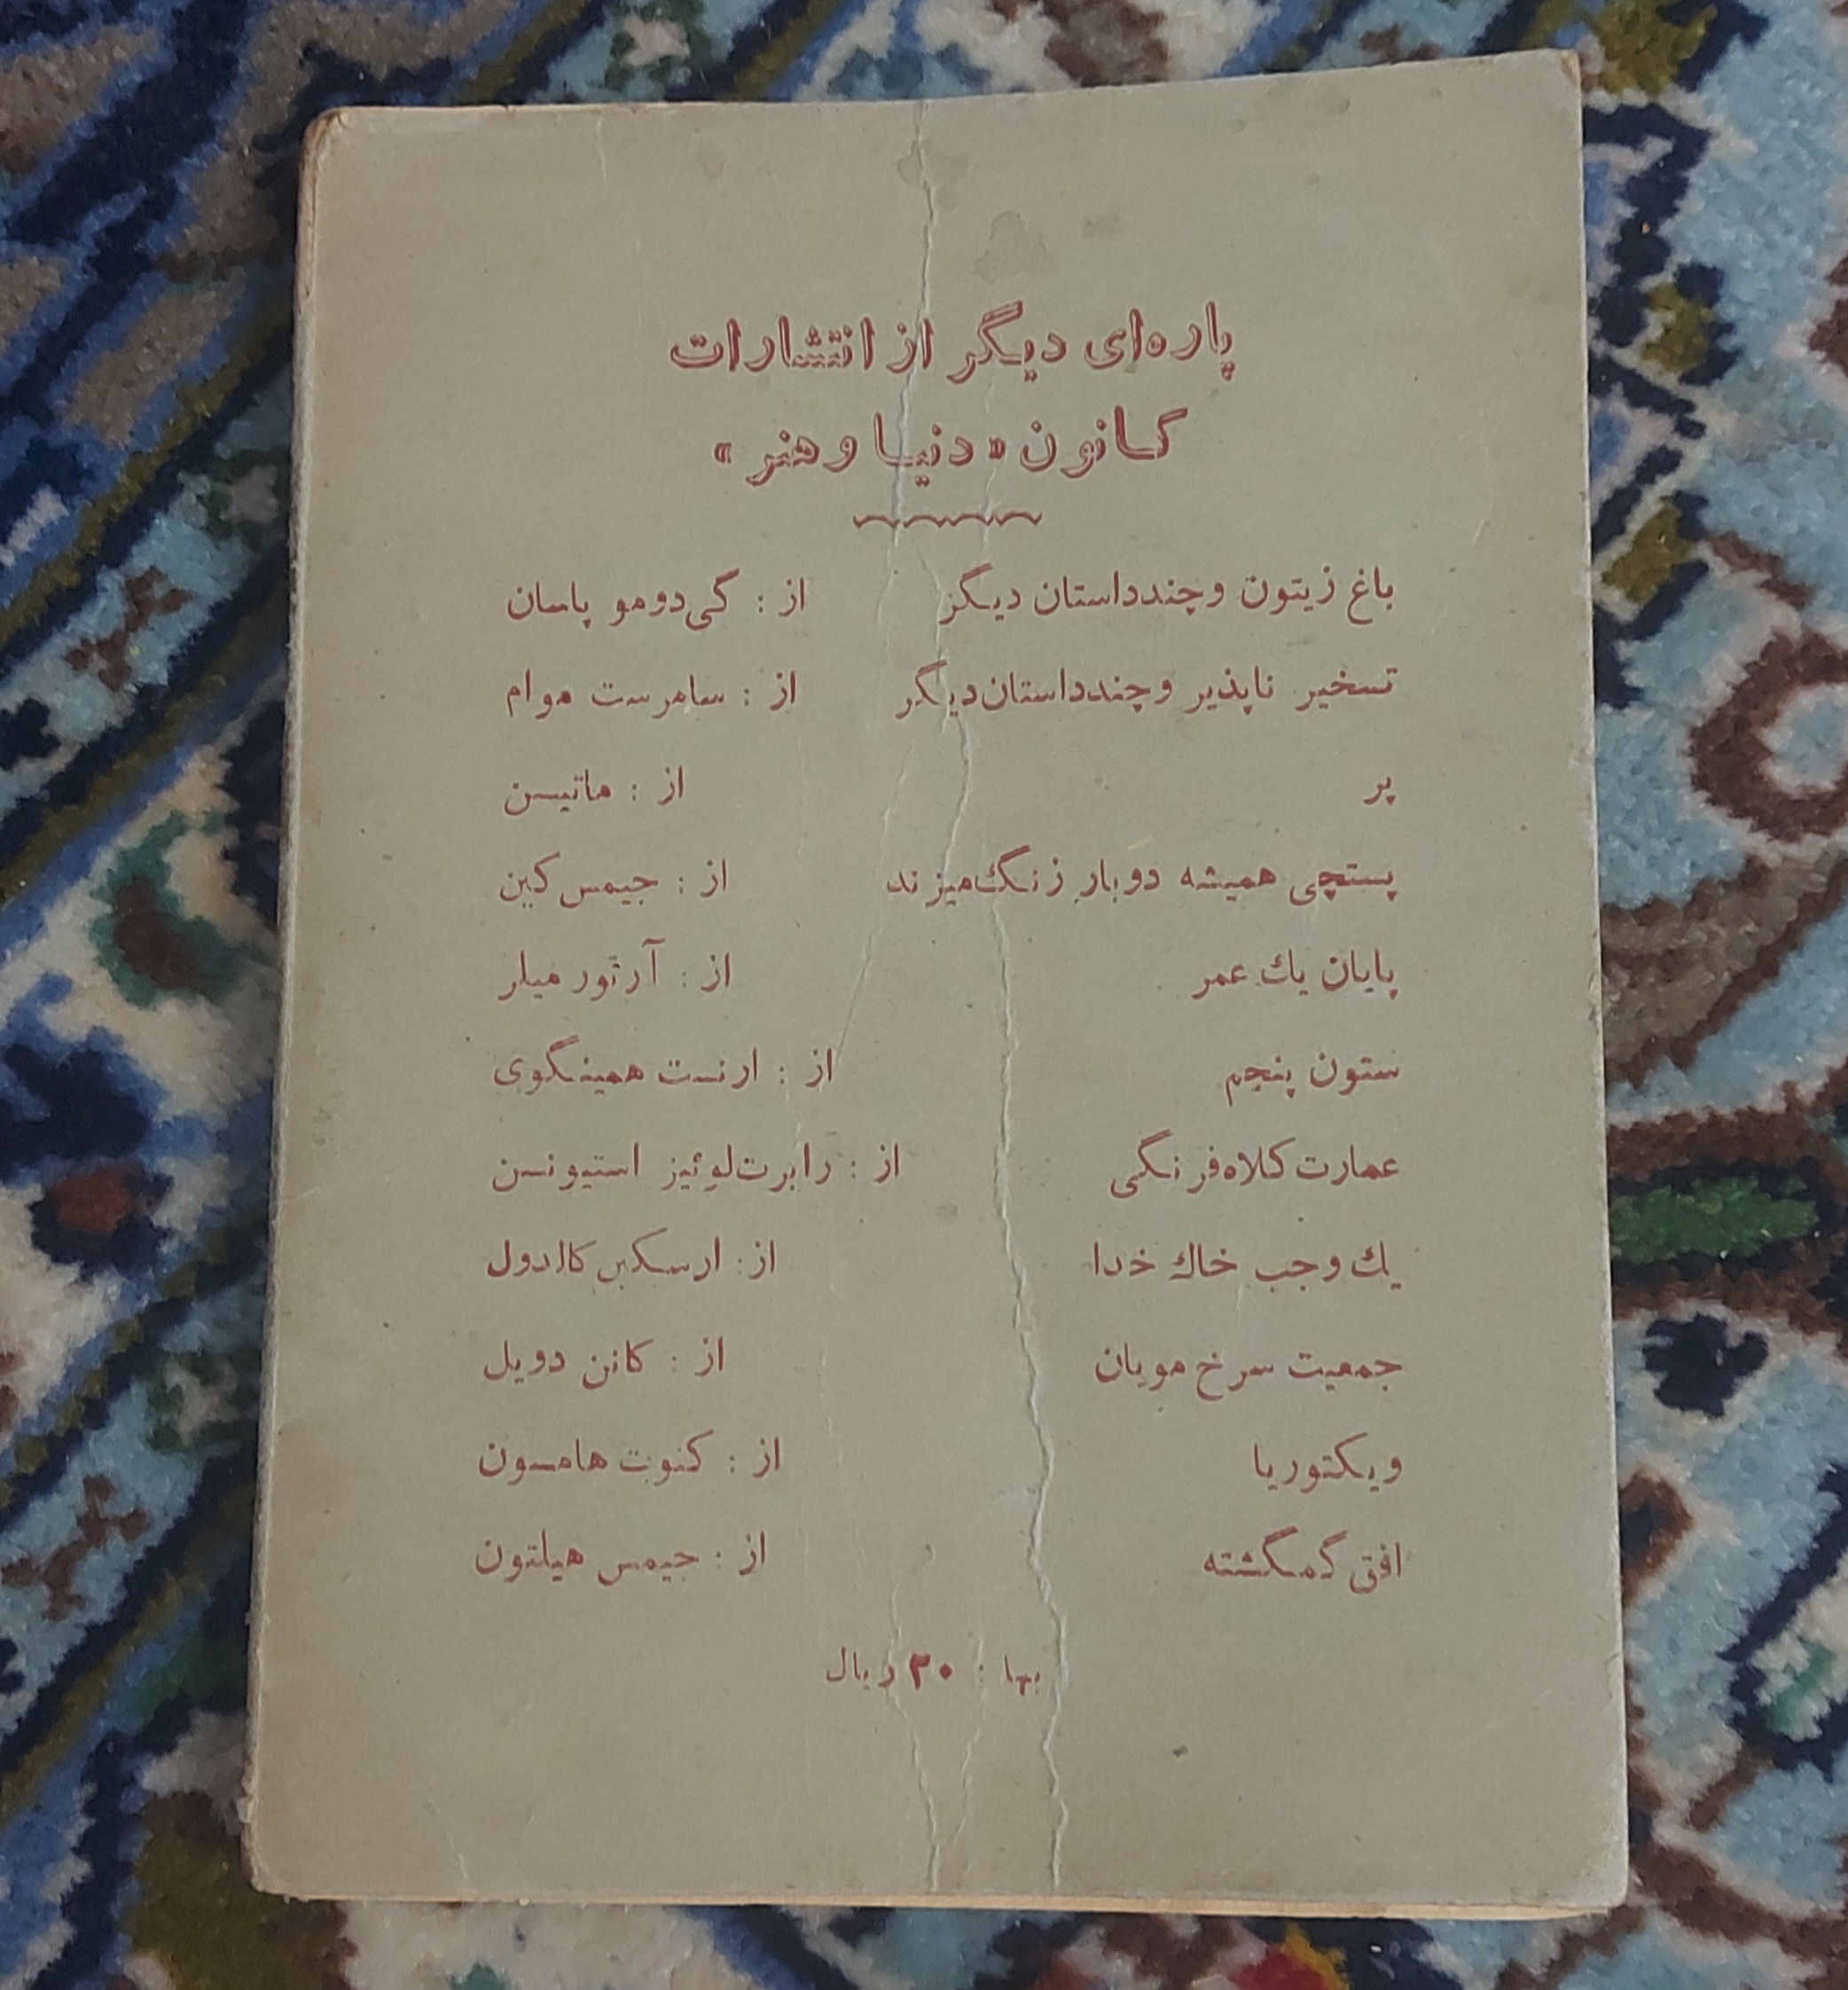 پاره‌ای دیگر از انتشارات
کانون «دنیا و هنر»
باغ زیتون و چند داستان دیگر از : گی دو مو پاسان
تسخیر ناپذیر و چند داستان دیگر از : سامرست موام
پر از : ماتیسن
پستچی همیشه دوبار زنگ میزند از : جیمس کین
پایان یک عمر از : آرتور میلر
ستون پنجم از : ارنست همینگوی
عمارت کلاه فرنگی از : رابرت لوئیز استیونسن
یک وجب خاک خدا از : ارسکین کالدول
جمعیت سرخ مویان از : کانن دویل
ویکتوریا از : کنوت هامسون
افق گمگشته از : جیمس هیلتون
بها : ۲۰ ریال